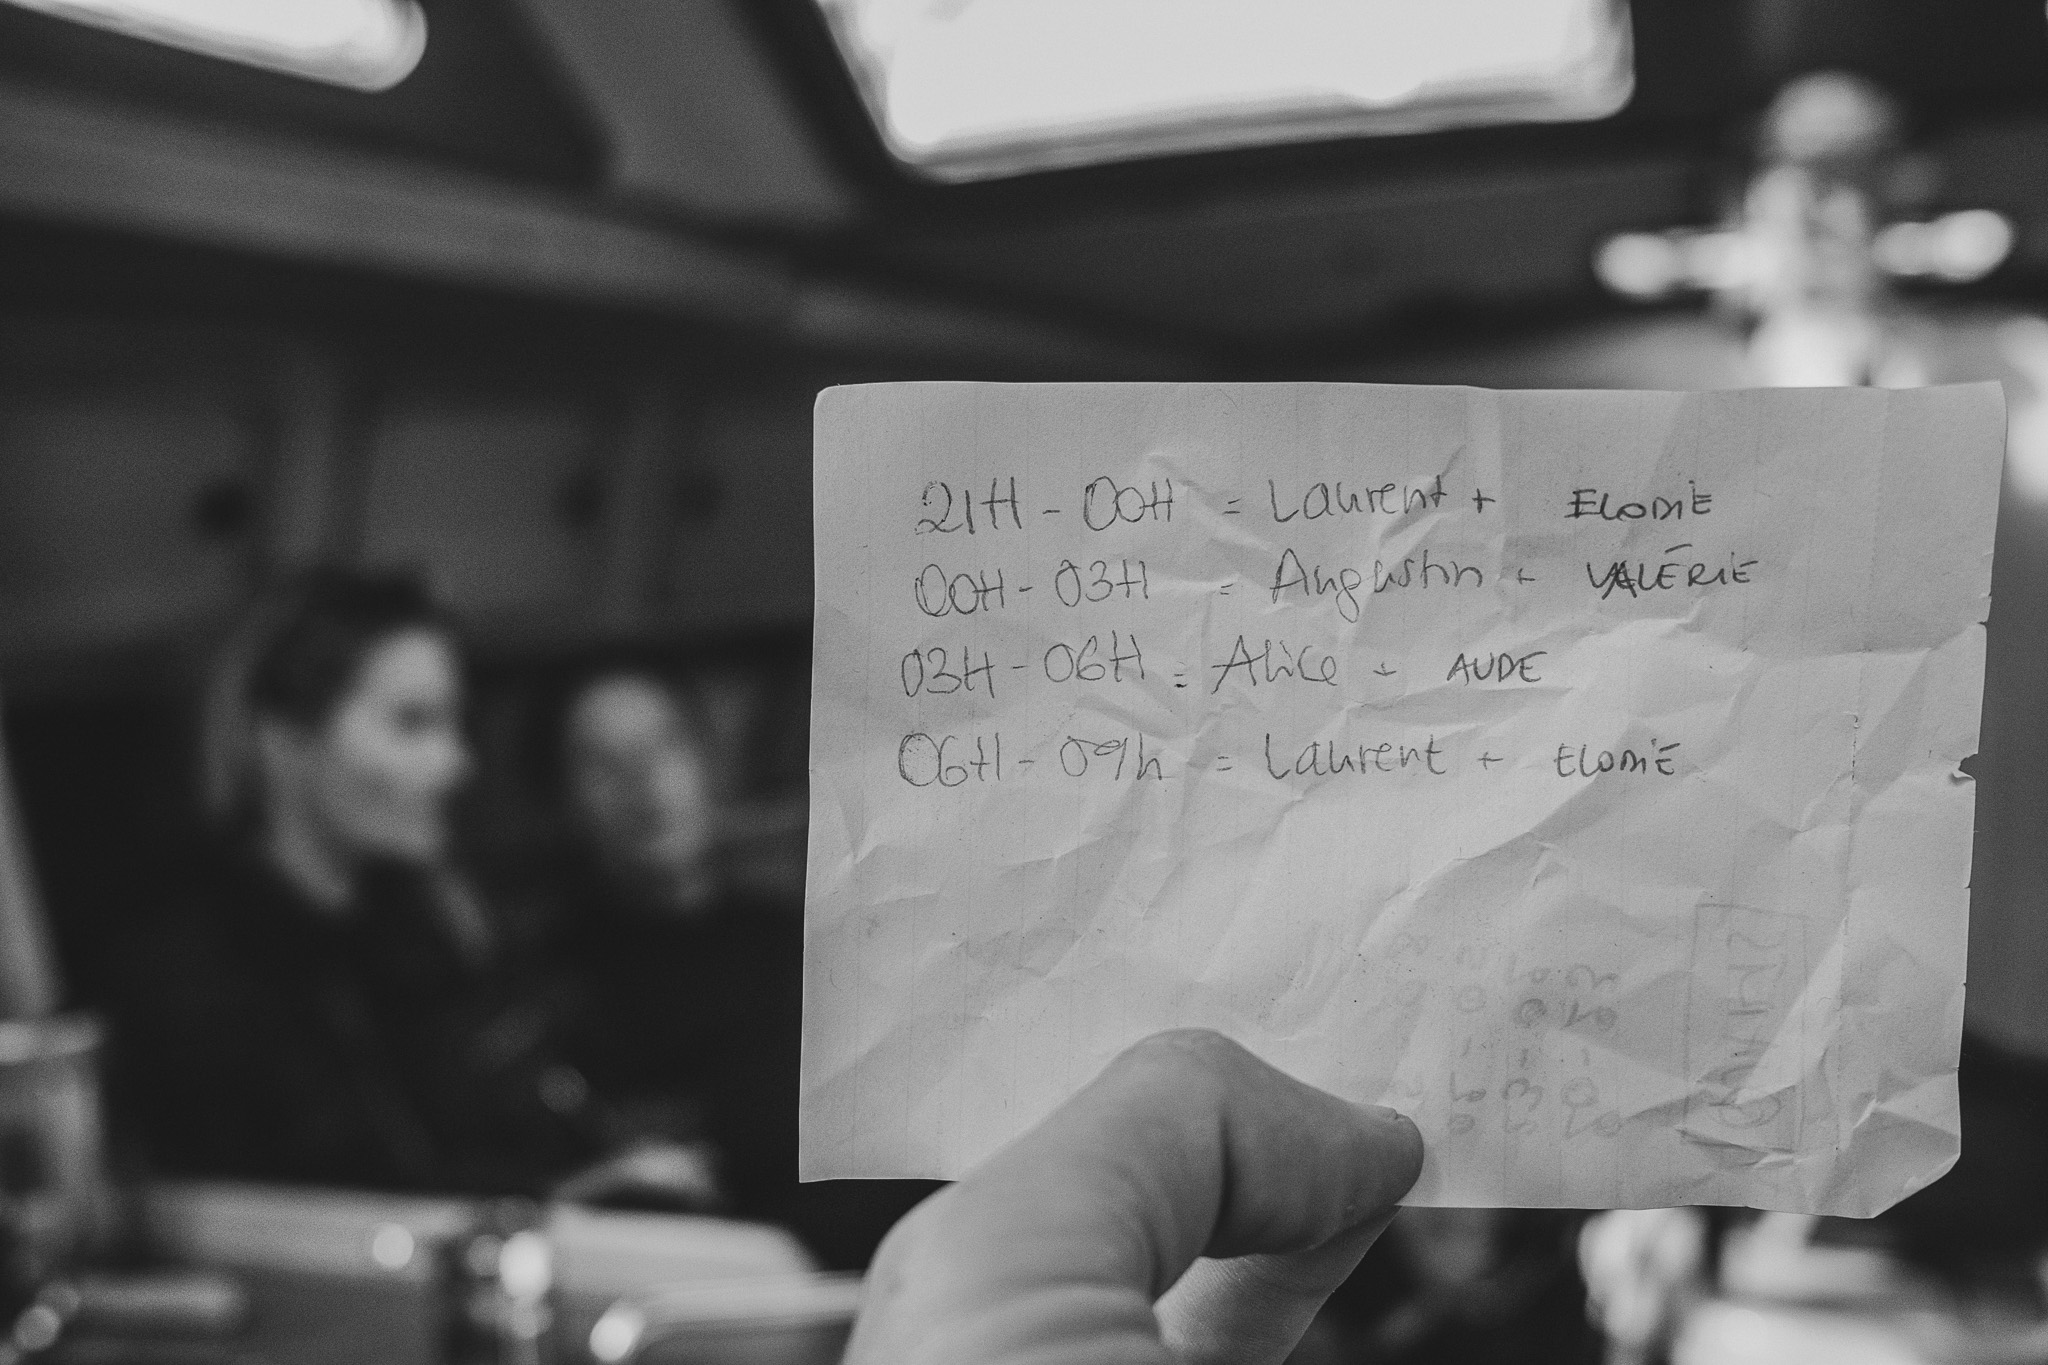 21H - 00H = Laurent + ELODIE
00H - 03H = Augustin + VALÉRIE
03H - 06H = Alice + AUDE
06H - 09h = Laurent + ELODIE